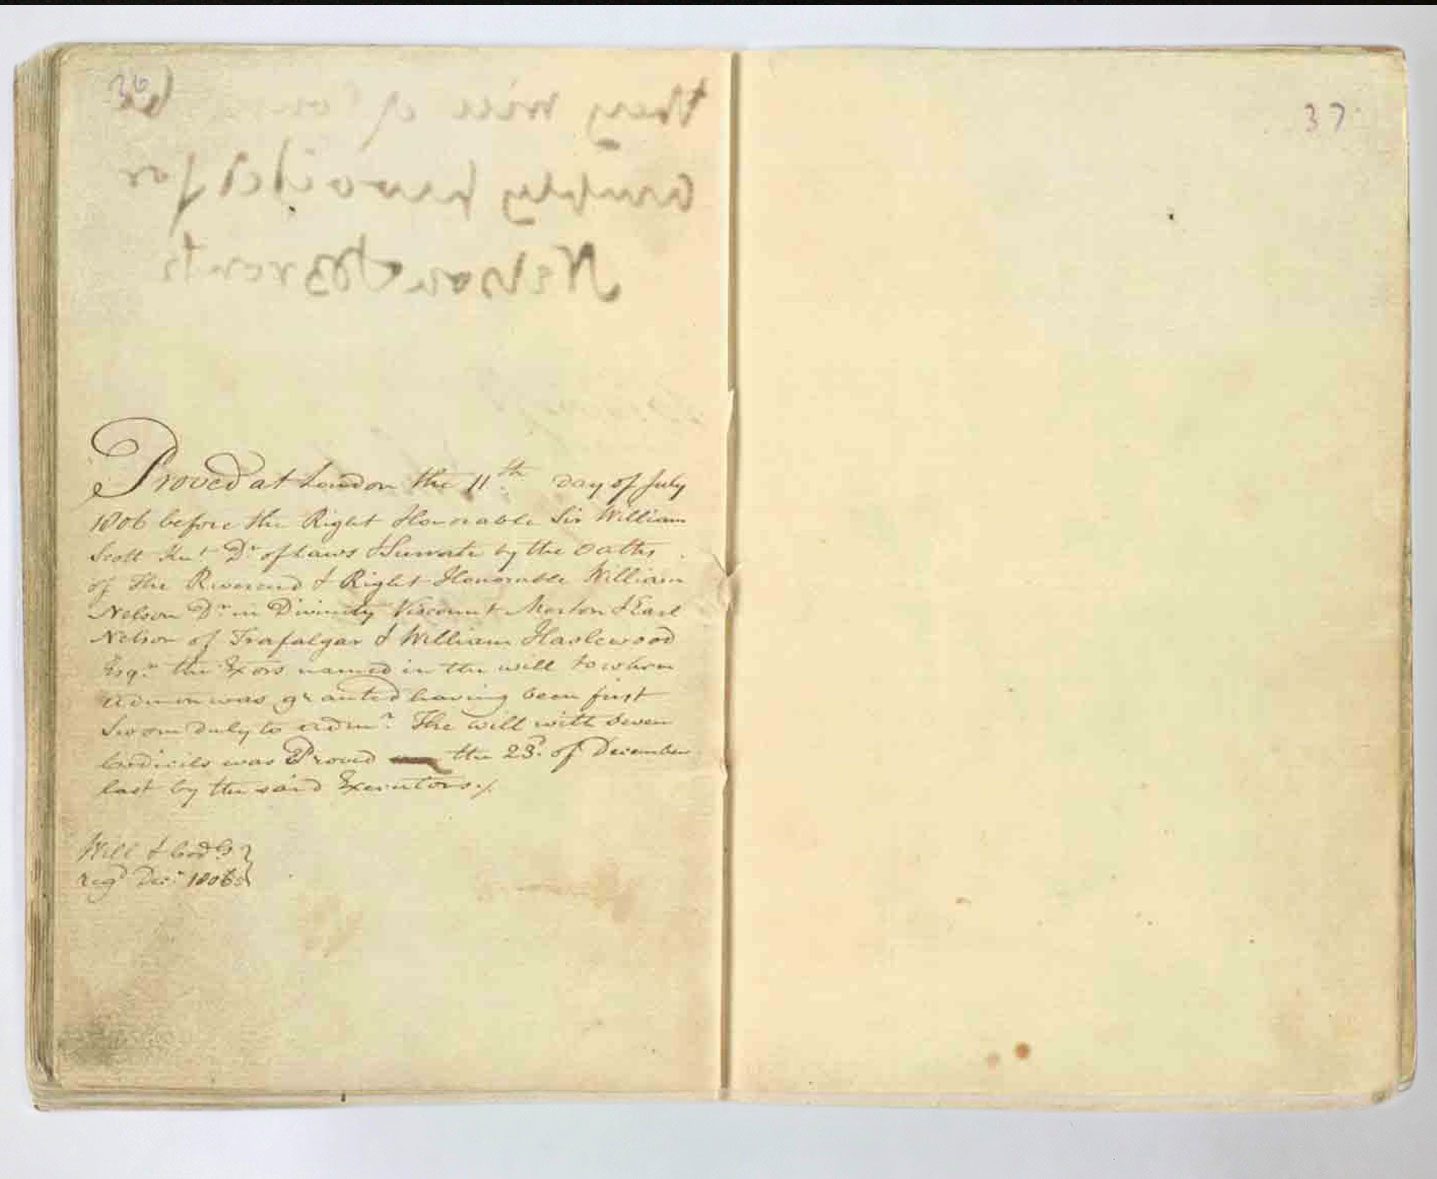 36
they will of course be
amply provided for
Nelson & Bronte
Proved at London the 11th day of July
1806 before the Right Honorable Sir William
Scott Knt Dr of Laws & Surrogate by the Oaths
of the Reverend & Right Honorable William
Nelson Dr in Divinity Viscount Merton & Earl
Nelson of Trafalgar & William Haslewood
Esqr the Exors named in the will to whom
admon was granted having been first
Sworn duly to admr The will with seven
Codicils was Proved the 23d of December
last by the said Executors
Will & Codls
regd Decr
37